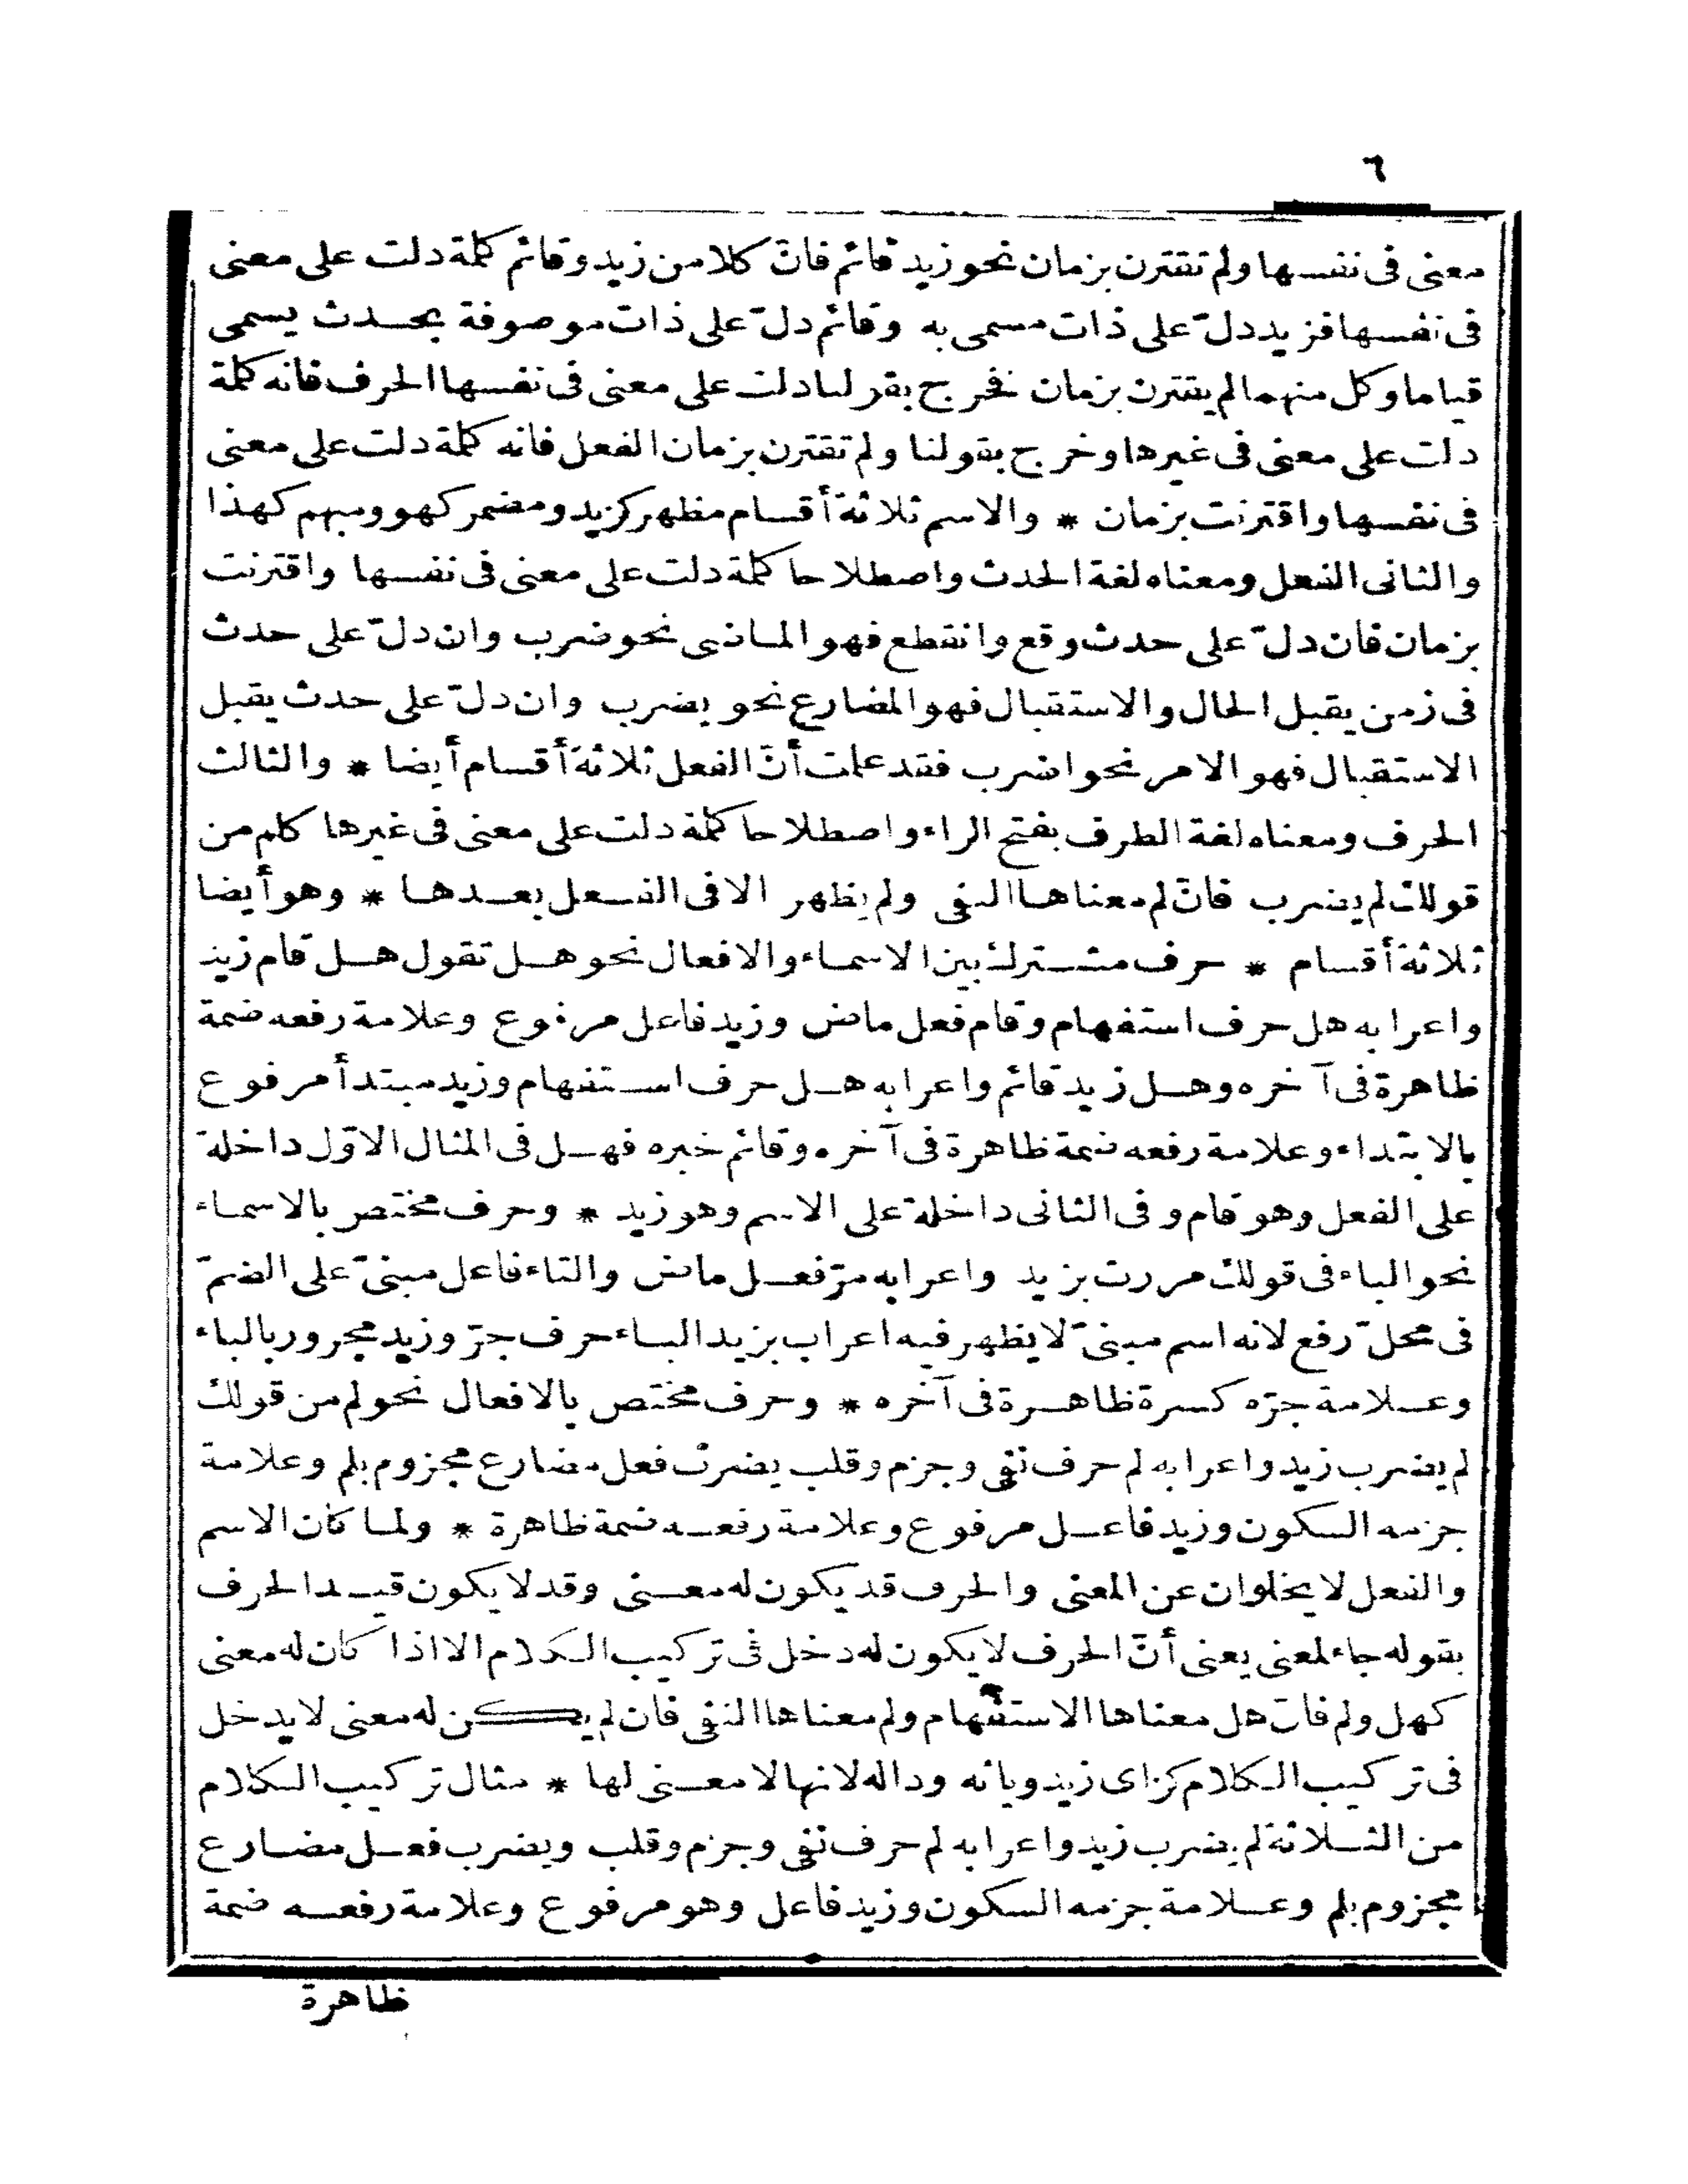 ٦
معنى فى نفسها ولم تقترن بزمان نحو زيد قائم فانّ كلا من زيد وقائم كلمة دلت على معنى
فى نفسها فزيد دلّ على ذات مسمى به وقائم دلّ على ذات موصوفة بحدث يسمى
قياما وكل منهما لم يقترن بزمان فخرج بقولنا دلت على معنى فى نفسها الحرف فانه كلمة
دلت على معنى فى غيرها وخرج بقولنا ولم تقترن بزمان الفعل فانه كلمة دلت على معنى
فى نفسها واقترنت بزمان * والاسم ثلاثة أقسام مظهر كزيد ومضمر كهو ومبهم كهذا
والثانى الفعل ومعناه لغة الحدث واصطلاحا كلمة دلت على معنى فى نفسها واقترنت
بزمان فان دلّ على حدث وقع وانقطع فهو الماضى نحو ضرب وان دلّ على حدث
فى زمن يقبل الحال والاستقبال فهو المضارع نحو يضرب وان دلّ على حدث يقبل
الاستقبال فهو الامر نحو اضرب فقد علمت أنّ الفعل ثلاثة أقسام أيضا * والثالث
الحرف ومعناه لغة الطرف بفتح الراء واصطلاحا كلمة دلت على معنى فى غيرها كلم من
قولك لم يضرب فانّ لم معناها النفى ولم يظهر الا فى الفعل بعدها * وهو أيضا
ثلاثة أقسام * حرف مشترك بين الاسماء والافعال نحو هل تقول هل قام زيد
واعرابه هل حرف استفهام وقام فعل ماض وزيد فاعل مرفوع وعلامة رفعه ضمة
ظاهرة فى آخره وهل زيد قائم واعرابه هل حرف استفهام وزيد مبتدأ مرفوع
بالابتداء وعلامة رفعه ضمة ظاهرة فى آخره وقائم خبره فهل فى المثال الاوّل داخلة
على الفعل وهو قام وفى الثانى داخلة على الاسم وهو زيد * وحرف مختص بالاسماء
نحو الباء فى قولك مررت بزيد واعرابه مرّ فعل ماض والتاء فاعل مبنىّ على الضمّ
فى محلّ رفع لانه اسم مبنىّ لا يظهر فيه اعراب بزيد الباء حرف جرّ وزيد مجرور بالباء
وعلامة جرّه كسرة ظاهرة فى آخره * وحرف مختص بالافعال نحو لم من قولك
لم يضرب زيد واعرابه لم حرف نفى وجزم وقلب يضرب فعل مضارع مجزوم بلم وعلامة
جزمه السكون وزيد فاعل مرفوع وعلامة رفعه ضمة ظاهرة * ولما كان الاسم
والفعل لا يخلوان عن المعنى والحرف قد يكون له معنى وقد لا يكون قيد الحرف
بقوله جاء لمعنى يعنى أنّ الحرف لا يكون له دخل فى تركيب الكلام الا اذا كان له معنى
كهل ولم فانّ هل معناها الاستفهام ولم معناها النفى فان لم يكن له معنى لا يدخل
فى تركيب الكلام كزاى زيد ويائه وداله لانها لا معنى لها * مثال تركيب الكلام
من الثلاثة لم يضرب زيد واعرابه لم حرف نفى وجزم وقلب ويضرب فعل مضارع
مجزوم بلم وعلامة جزمه السكون وزيد فاعل وهو مرفوع وعلامة رفعه ضمة
ظاهرة